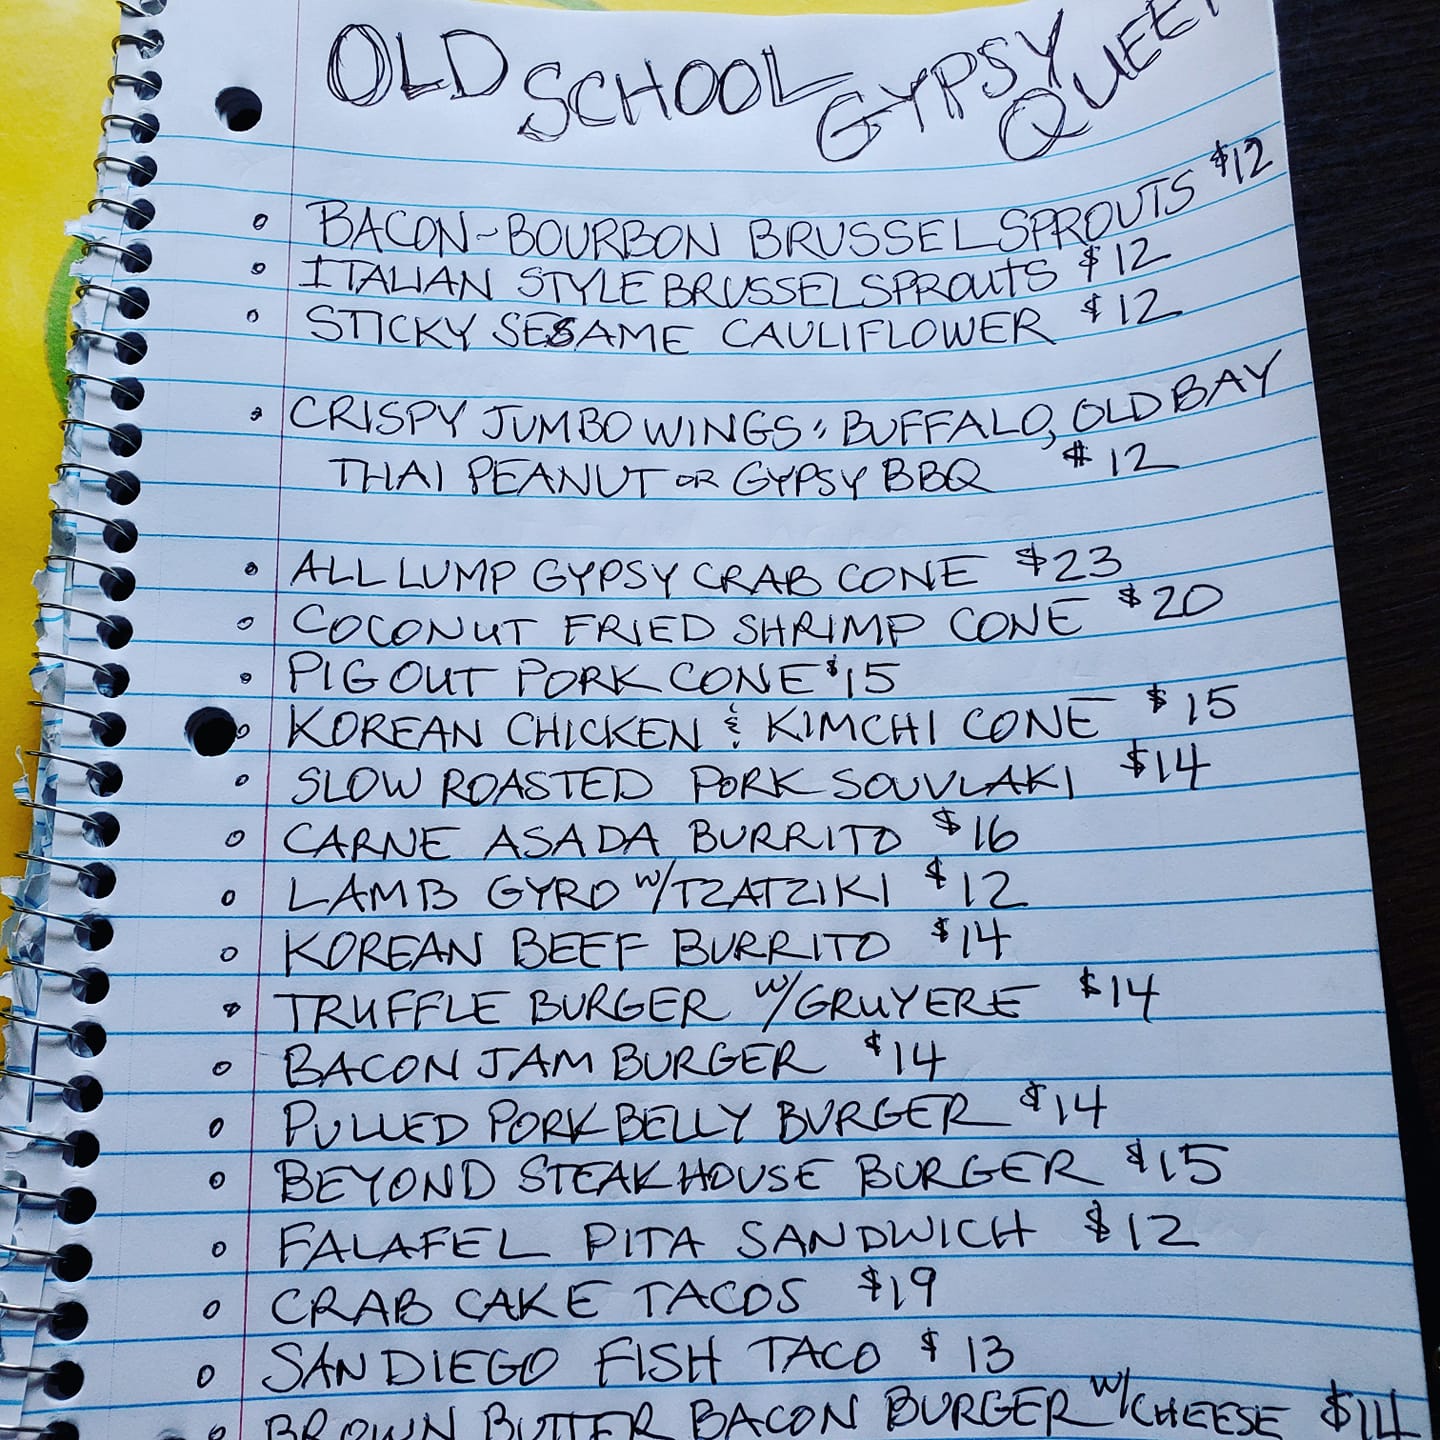 OLD SCHOOL GYPSY QUEEN
BACON-BOURBON BRUSSEL SPROUTS $12
ITALIAN STYLE BRUSSEL SPROUTS $12
STICKY SESAME CAULIFLOWER $12
CRISPY JUMBO WINGS: BUFFALO, OLD BAY
THAI PEANUT OR GYPSY BBQ $12
ALL LUMP GYPSY CRAB CONE $23
COCONUT FRIED SHRIMP CONE $20
PIG OUT PORK CONE $15
KOREAN CHICKEN & KIMCHI CONE $15
SLOW ROASTED PORK SOUVLAKI $14
CARNE ASADA BURRITO $16
LAMB GYRO W/TZATZIKI $12
KOREAN BEEF BURRITO $14
TRUFFLE BURGER W/GRUYERE $14
BACON JAM BURGER $14
PULLED PORK BELLY BURGER $14
BEYOND STEAKHOUSE BURGER $15
FALAFEL PITA SANDWICH $12
CRAB CAKE TACOS $19
SAN DIEGO FISH TACO $13
BROWN BUTTER BACON BURGER W/CHEESE $14